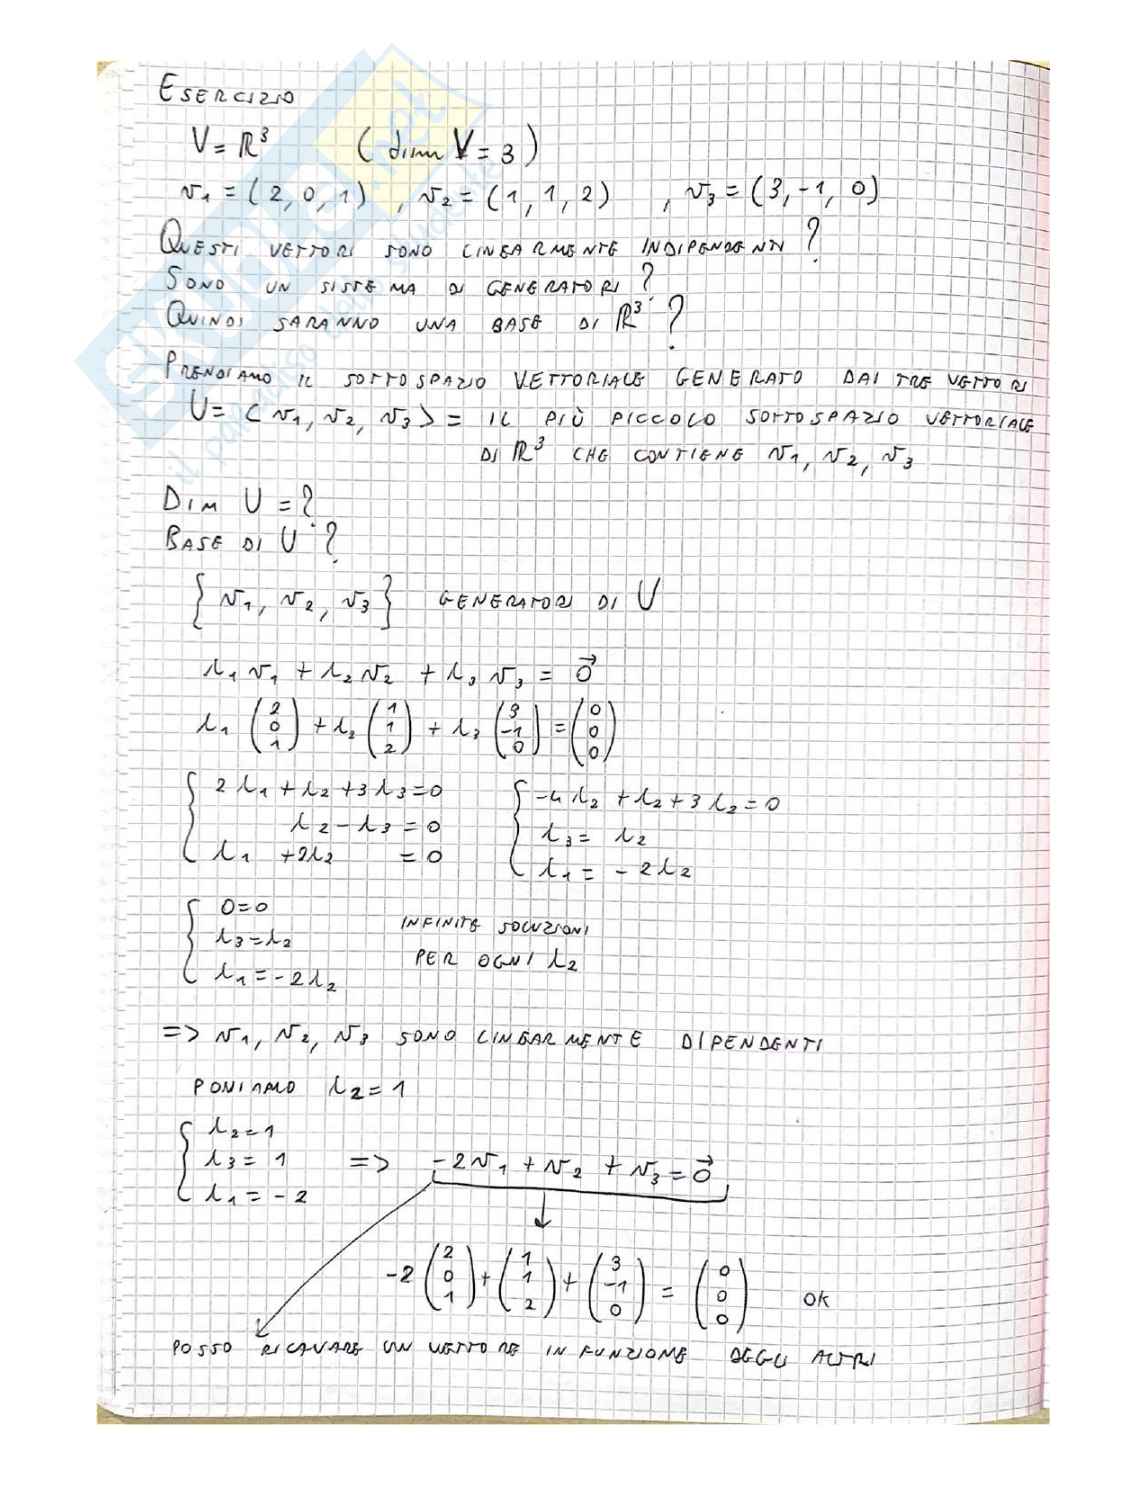 ESERCIZIO
V = ℝ³ (dim V = 3)
v₁ = (2, 0, 1) , v₂ = (1, 1, 2) , v₃ = (3, -1, 0)
QUESTI VETTORI SONO LINEARMENTE INDIPENDENTI ?
SONO UN SISTEMA DI GENERATORI ?
QUINDI SARANNO UNA BASE DI ℝ³ ?
PRENDIAMO IL SOTTOSPAZIO VETTORIALE GENERATO DAI TRE VETTORI
U = < v₁, v₂, v₃ > = IL PIÙ PICCOLO SOTTOSPAZIO VETTORIALE
DI ℝ³ CHE CONTIENE v₁, v₂, v₃
DIM U = ?
BASE DI U ?
{ v₁, v₂, v₃ } GENERATORI DI U
λ₁ v₁ + λ₂ v₂ + λ₃ v₃ = 0⃗
λ₁ (2 0 1) + λ₂ (1 1 2) + λ₃ (3 -1 0) = (0 0 0)
{ 2λ₁ + λ₂ + 3λ₃ = 0 { -4λ₂ + λ₂ + 3λ₂ = 0
λ₂ - λ₃ = 0 λ₃ = λ₂
λ₁ + 2λ₂ = 0 λ₁ = -2λ₂
{ 0 = 0 INFINITE SOLUZIONI
λ₃ = λ₂ PER OGNI λ₂
λ₁ = -2λ₂
=> v₁, v₂, v₃ SONO LINEARMENTE DIPENDENTI
PONIAMO λ₂ = 1
{ λ₂ = 1
λ₃ = 1 => -2v₁ + v₂ + v₃ = 0⃗
λ₁ = -2
-2 (2 0 1) + (1 1 2) + (3 -1 0) = (0 0 0) OK
POSSO RICAVARE UN VETTORE IN FUNZIONE DEGLI ALTRI
SKUOLA.net